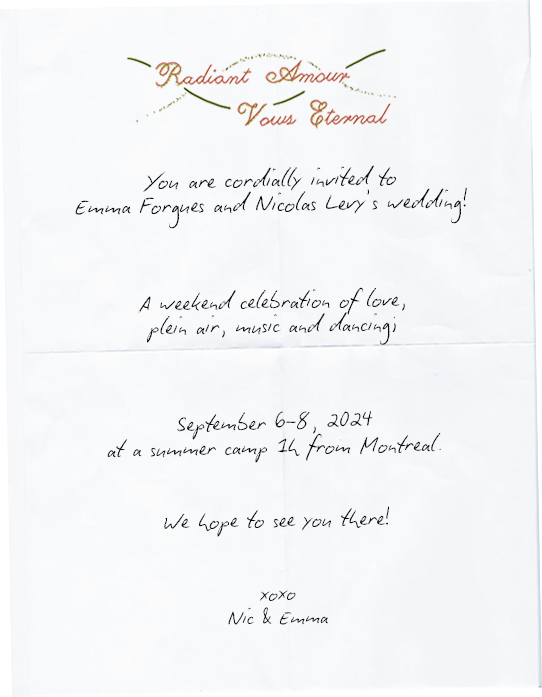 Radiant Amour
Vows Eternal
You are cordially invited to
Emma Forgues and Nicolas Levy's wedding!
A weekend celebration of love,
plein air, music and dancing;
September 6-8, 2024
at a summer camp 1h from Montreal.
We hope to see you there!
xoxo
Nic & Emma